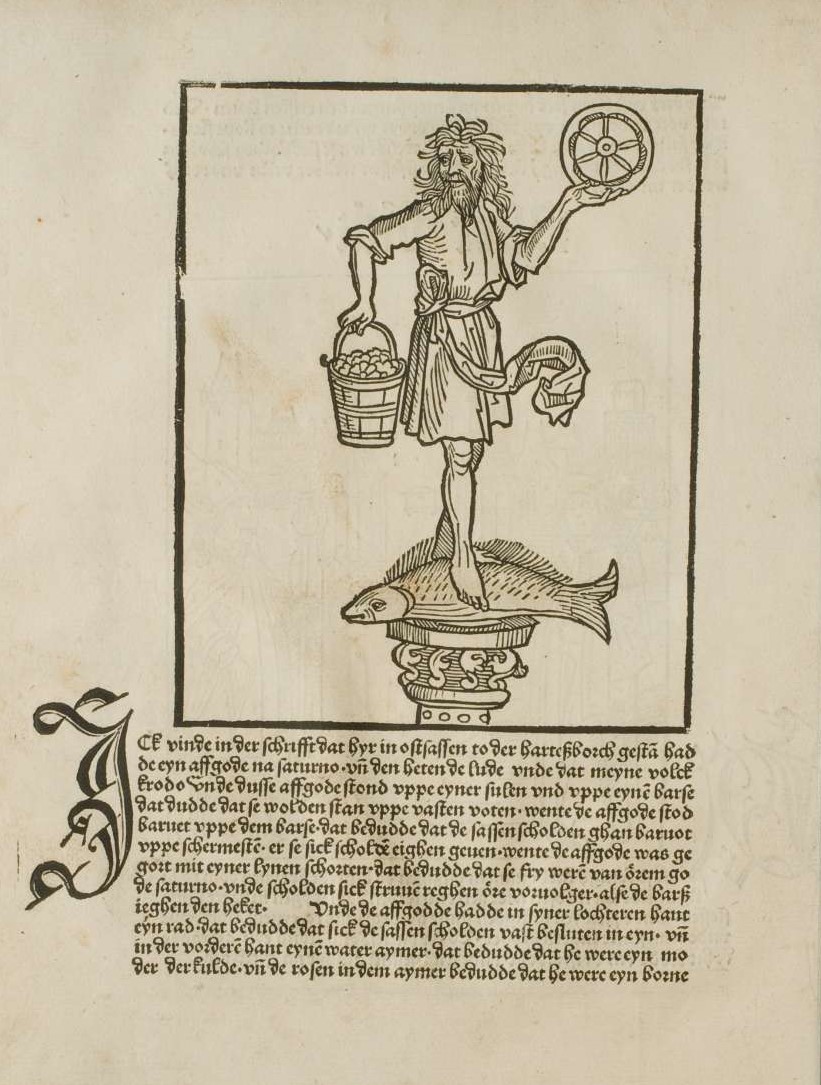 ICk vinde in der schrifft dat hyr in ostsassen to der harteßborch gestā had
de eyn affgode na saturno·vn̄ den heten de lude vnde dat meyne volck
krodo Vnde dusse affgode stond vppe eyner sulen vnd vppe eynē barse
dat dudde dat se wolden stan vppe vasten voten·wente de affgode stod
baruet vppe dem barse·dat bedudde dat de sassen scholden ghan baruot
vppe schermestē· er se sick scholdē eighen geuen·wente de affgode was ge
gort mit eyner lynen schorten·dat bedudde dat se fry werē van örem go
de saturno·vnde scholden sick struuē reghen öre voruolger·alse de barß
ieghen den heket· Vnde de affgodde hadde in syner lochteren hant
eyn rad·dat bedudde dat sick de sassen scholden vast besluten in eyn· vn̄
in der vorderē hant eynē water aymer·dat bedudde dat he were eyn mo
der der kulde·vn̄ de rosen in dem aymer bedudde dat he were eyn borne